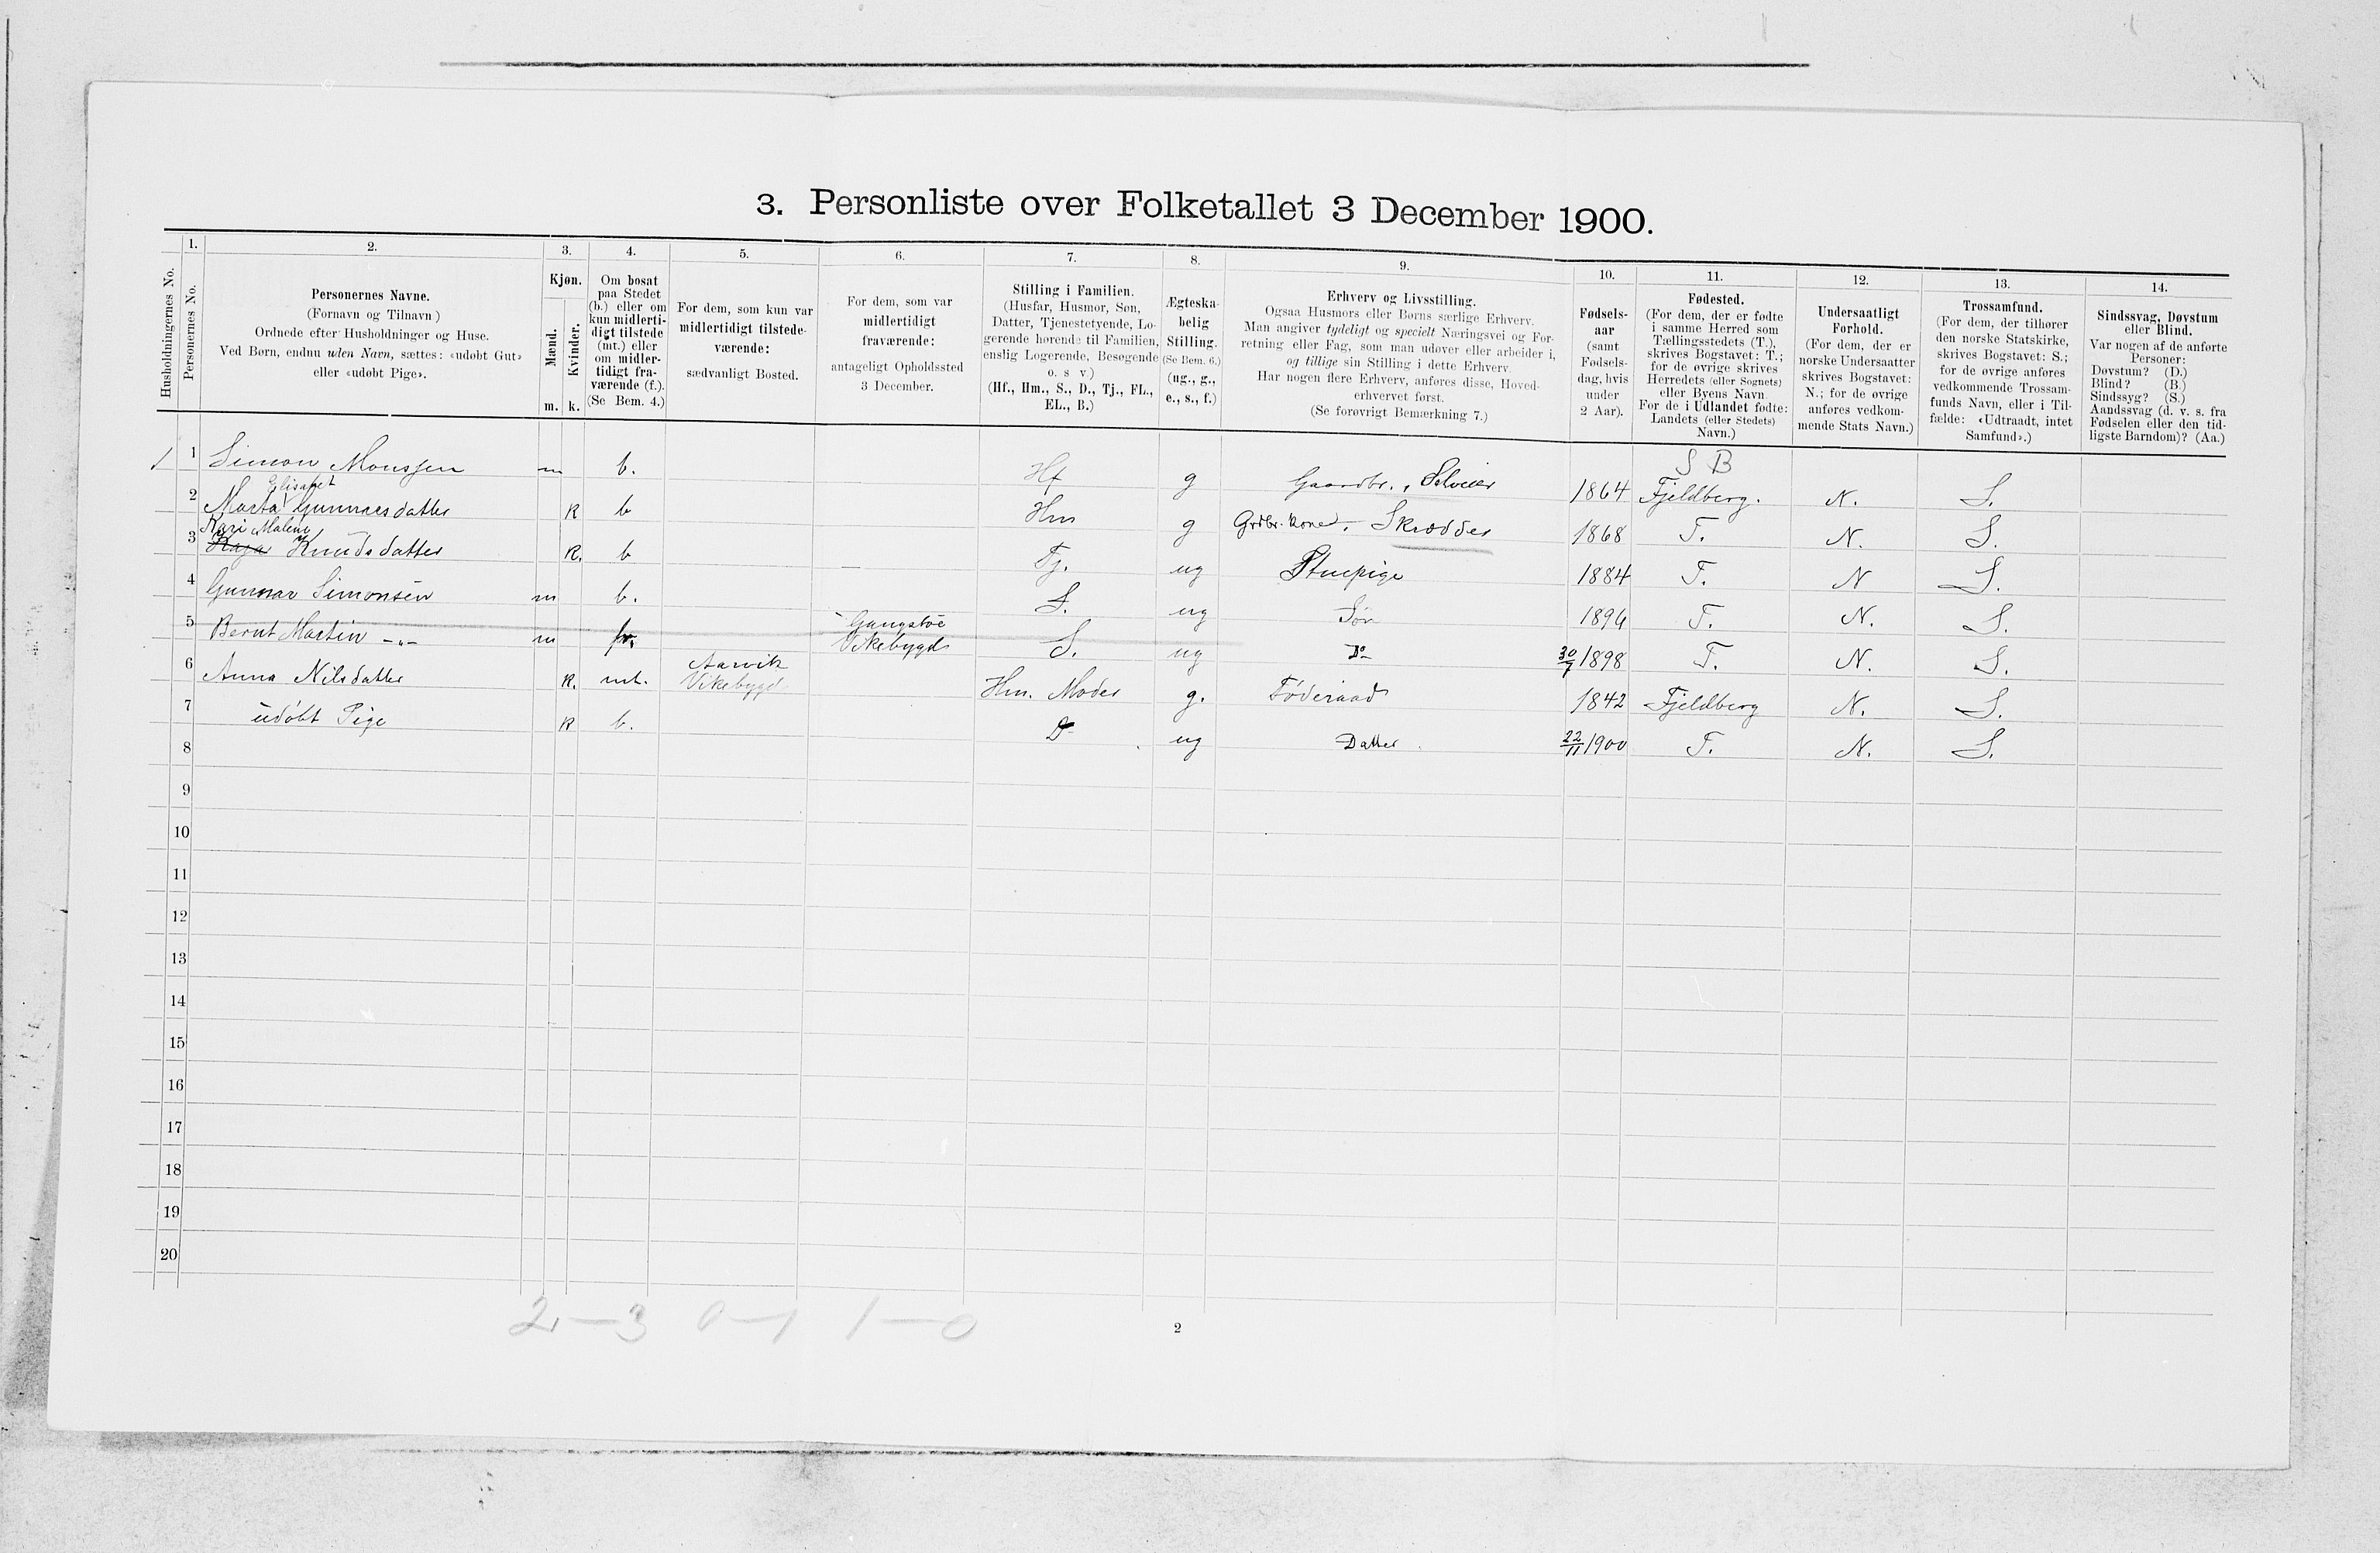 3. Personliste over Folketallet 3 December 1900.
Husholdningernes No.
1.
Personernes No.
2.
Personernes Navne.
(Fornavn og Tilnavn )
Ordnede efter Husholdninger og Huse.
Ved Børn, endnu uden Navn, sættes: «udøbt Gut»
eller «udøbt Pige».
3.
Kjøn.
Mænd.
Kvinder.
m. k.
4.
Om bosat
paa Stedet
(b.) eller om
kun midlerti-
digt tilstede
(mt.) eller
om midler-
tidigt fra-
værende (f.).
(Se Bem. 4.)
5.
For dem, som kun var
midlertidigt tilstede-
værende:
sædvanligt Bosted.
6.
For dem, som var
midlertidigt
fraværende:
antageligt Opholdssted
3 December.
7.
Stilling i Familien.
(Husfar, Husmor, Søn,
Datter, Tjenestetyende, Lo-
gerende hørende til Familien,
enslig Logerende, Besøgende
o. s v.)
(Hf., Hm., S., D., Tj., FL.,
EL., B.)
8.
Ægteska-
belig
Stilling.
(Se Bem. 6.)
(ug., g.,
e., s., f.)
9.
Erhverv og Livsstilling.
Ogsaa Husmors eller Børns særlige Erhverv.
Man angiver tydeligt og specielt Næringsvei og For-
retning eller Fag, som man udøver eller arbeider i,
og tillige sin Stilling i dette Erhverv.
Har nogen flere Erhverv, anføres disse, Hoved-
erhvervet først.
(Se forøvrigt Bemærkning 7.)
10.
Fødsels-
aar
(samt
Fødsels-
dag, hvis
under
2 Aar).
11.
Fødested.
(For dem, der er fødte
i samme Herred som
Tællingsstedets (T.),
skrives Bogstavet: T.;
for de øvrige skrives
Herredets (eller Sognets)
eller Byens Navn.
For de i Udlandet fødte:
Landets (eller Stedets)
Navn.)
12.
Undersaatligt
Forhold.
(For dem, der er
norske Undersaatter
skrives Bogstavet:
N.; for de øvrige
anføres vedkom-
mende Stats Navn.)
13.
Trossamfund.
(For dem, der tilhører
den norske Statskirke,
skrives Bogstavet: S.;
for de øvrige anføres
vedkommende Trossam-
funds Navn, eller i Til-
fælde: «Udtraadt, intet
Samfund».)
14.
Sindssvag, Døvstum
eller Blind.
Var nogen af de anførte
Personer:
Døvstum? (D.)
Blind? (B.)
Sindssyg? (S.)
Aandssvag (d. v. s. fra
Fødselen eller den tid-
ligste Barndom)? (Aa.)
S B
1 1 Simon Monssen m b. Hf g Gaardbr., Selveier 1864 Fjeldberg. N. S.
Elisabet
2 Marta Gunnarsdatter k b Hm g Grdbr. kone. Skrædder 1868 T. N. S.
Kari Malene
3 Knudsdatter k. b Tj. ug Stuepige 1884 T. N S.
4 Gunnar Simonsen m b. S. ug Søn 1896 T. N. S.
Vikebygd
5 Bernt Martin -„- m S. ug Do 30/7 1898 T. N. S.
Aarvik
6 Anna Nilsdatter k. mt. Vikebygd Hm. Moder g. Føderaad 1842 Fjeldberg N. S.
7 udøbt Pige k b. D ug Datter 22/11 1900 T. N. S.
8
9
10
11
12
13
14
15
16
17
18
19
20
2—3 0—1 1—0
2